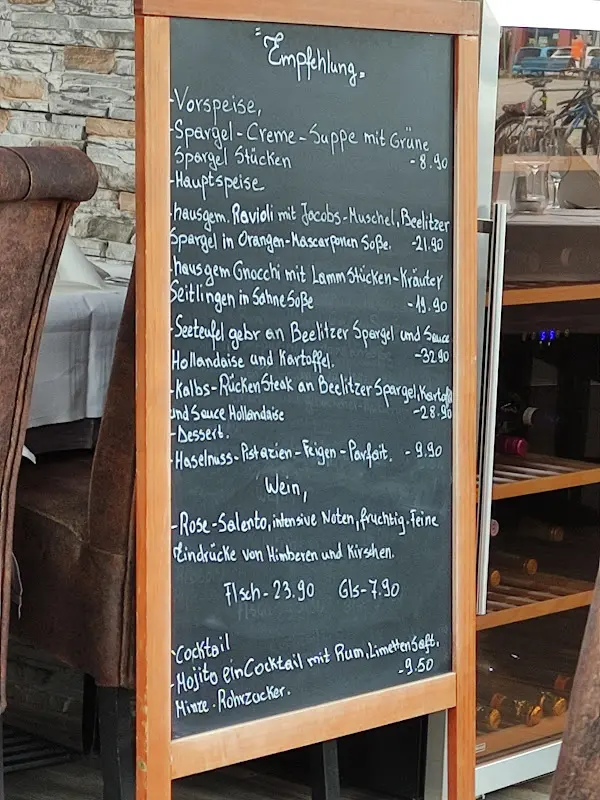 "Empfehlung"
-Vorspeise,
-Spargel-Creme-Suppe mit Grüne
Spargel Stücken -8.90
-Hauptspeise
-hausgem. Ravioli mit Jacobs-Muschel, Beelitzer
Spargel in Orangen-Mascarponen Soße. -21.90
-hausgem Gnocchi mit Lamm Stücken-Kräuter
Seitlingen in Sahne Soße -19.90
-Seeteufel gebr an Beelitzer Spargel und Sauce
Hollandaise und Kartoffel. -32.90
-Kalbs-Rücken Steak an Beelitzer Spargel, Kartoffel
und Sauce Hollandaise -28.90
-Dessert.
-Haselnuss-Pistazien-Feigen-Parfait. -9.90
Wein,
-Rose-Salento, intensive Noten, fruchtig. Feine
Eindrücke von Himberen und Kirschen.
Flsch-23.90 Gls-7.90
-Cocktail
-Mojito ein Cocktail mit Rum, Limetten Saft,
Minze. Rohrzucker. -9.50